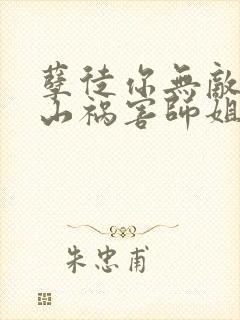 孽徒你無敵
山祸害師姐
朱忠甫